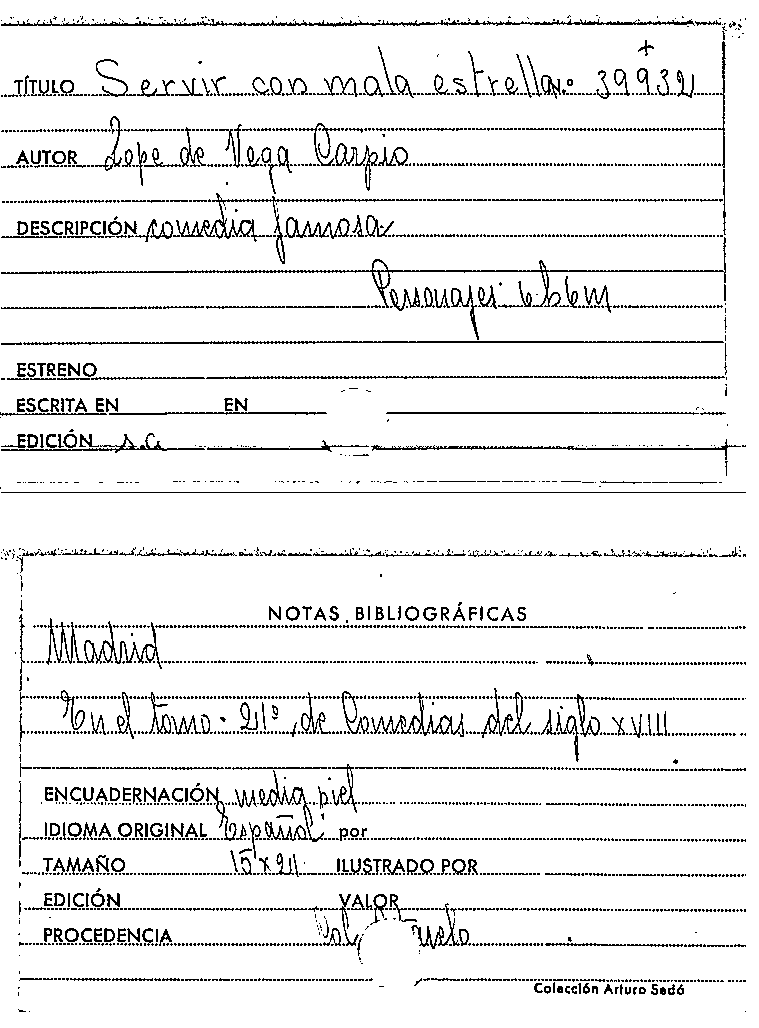 TÍTULO Servir con mala estrella N.º 39932 +
AUTOR Lope de Vega Carpio
DESCRIPCIÓN comedia famosa
Personajes: 6 h 6 m
ESTRENO
ESCRITA EN EN
EDICIÓN s.a.
NOTAS BIBLIOGRÁFICAS
Madrid
En el tomo 21º de Comedias del siglo XVIII
ENCUADERNACIÓN media piel
IDIOMA ORIGINAL Español por
TAMAÑO 15 x 21 ILUSTRADO POR
EDICIÓN VALOR
PROCEDENCIA
Colección Arturo Sedó